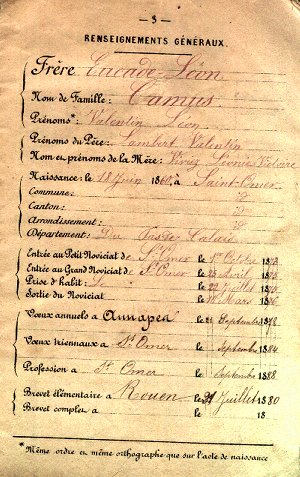 — 3 —
RENSEIGNEMENTS GÉNÉRAUX.
Frère Encade-Léon
Nom de Famille: Camus
Prénoms*: Valentin Léon
Prénoms du Père: Lambert Valentin
Nom et prénoms de la Mère: Léonie Victoire
Naissance: le 18 Juin 18 à Saint-Omer
Commune:
Canton:
Arrondissement:
Département: Du Pas de Calais
Entrée au Petit Noviciat de St Omer le 1er Octobre 1873
Entrée au Grand Noviciat de St Omer le Avril 18
Prise d'Habit Le le 22 juillet 18
Sortie du Noviciat le Mars 1876
Vœux annuels à Annapes le Septembre 1878
Vœux triennaux à St Omer le Septembre 1884
Profession à St Omer le Septembre 1888
Brevet élémentaire à Rouen le 21 Juillet 1880
Brevet complet à le 18
*Même ordre et même orthographe que sur l'acte de naissance